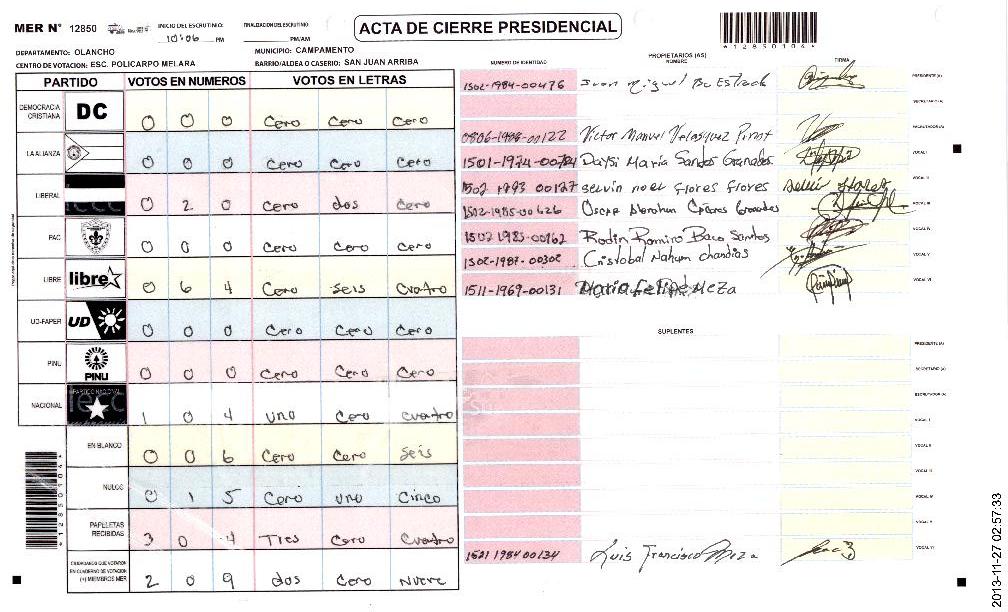 MER N° 12850 INICIO DEL ESCRUTINIO: 10:06 PM FINALIZACION DEL ESCRUTINIO PM/AM
ACTA DE CIERRE PRESIDENCIAL
*12850104*
DEPARTAMENTO: OLANCHO MUNICIPIO: CAMPAMENTO
CENTRO DE VOTACION: ESC. POLICARPO MELARA BARRIO/ALDEA O CASERIO: SAN JUAN ARRIBA
PARTIDO VOTOS EN NUMEROS VOTOS EN LETRAS
DEMOCRACIA CRISTIANA DC 0 0 0 Cero Cero Cero
LA ALIANZA 0 0 0 Cero Cero Cero
LIBERAL 0 2 0 Cero dos Cero
PAC 0 0 0 Cero Cero Cero
LIBRE libre 0 6 4 Cero seis cuatro
UD-FAPER UD 0 0 0 Cero Cero Cero
PINU PINU 0 0 0 Cero Cero Cero
NACIONAL 1 0 4 uno Cero cuatro
EN BLANCO 0 0 6 Cero Cero seis
NULOS 0 1 5 Cero uno Cinco
PAPELETAS RECIBIDAS 3 0 4 Tres Cero Cuatro
CIUDADANOS QUE VOTARON EN CUADERNO DE VOTACION (+) MIEMBROS MER 2 0 9 dos Cero Nueve
PROPIETARIOS (AS)
NUMERO DE IDENTIDAD NOMBRE FIRMA
1502-1984-00476 PRESIDENTE (A)
SECRETARIO (A)
0806-1988-00122 Victor Manuel Velasquez ESCRUTADOR (A)
1501-1974-00724 Daysi Maria Santos Granados VOCAL I
1502 1993 00127 selvin noel flores flores VOCAL II
1502-1985-00626 Oscar Abrahan Granados VOCAL III
1502 1985-00162 Rodin Romiro Baca Santos VOCAL IV
1502-1987-00302 Cristobal Nahum chandias VOCAL V
1511-1969-00131 Maria Felipe Meza VOCAL VI
SUPLENTES
PRESIDENTE (A)
SECRETARIO (A)
ESCRUTADOR (A)
VOCAL I
VOCAL II
VOCAL III
VOCAL IV
VOCAL V
1521 1984 00134 Luis Francisco Meza VOCAL VI
2013-11-27 02:57:33